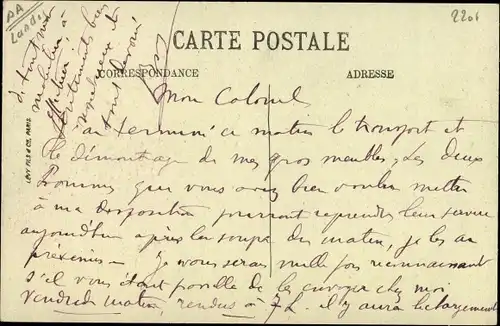 PA
Landes
2201
CARTE POSTALE
CORRESPONDANCE
ADRESSE
LEVY FILS & Cie, PARIS
Mon Colonel
J'ai terminé ce matin le transport et
le démontage de mes gros meubles. Les deux
hommes que vous avez bien voulu mettre
à ma disposition pourront reprendre leur service
aujourd'hui après la soupe du matin, je les ai
prévenus — Je vous serais mille fois reconnaissant
s'il vous était possible de les envoyer chez moi
vendredi matin, rendus à 7 h. il y aura le chargement
de tout mon
mobilier à
effectuer.
Sentiments bien
respectueux et
tout dévoué